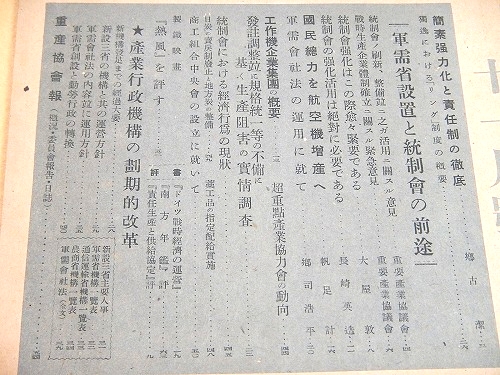 簡素强力化と責任制の徹底
鄕古潔
獨逸における「リング」制度の概要
「軍需省設置と統制會の前途」
統制會ノ刷新、整備竝ニ之ガ活用ニ關スル意見
重要產業協議會
戰時生產企業體制確立ニ關スル緊急意見
重要產業協議會
統制會强化はこの際愈々緊要である
大屋敦
統制會の强化活用は絕對に必要である
長崎英造
國民總力を航空機增產へ
帆足計
軍需會社法の運用に就て
鄕司浩平
工作機企業集團の概要
超重點產業協力會の動向
發註調整竝に規格統一等の不備に
基く生產阻害の實情調査
統制會における經濟行爲の現狀
日炭の賣戾制廢止と地方炭の整備
鐵工品の指定配給實施
商工組合中央會の設立に就いて
製鐵映畫
『熱風』を評す
書評
『ドイツ戰時經濟の運營』
『南方年鑑』評
『責任生產と供給協定』評
★產業行政機構の劃期的改革
新機構發足までの經過大要
新設三省の機構と其の運營方針
軍需會社法の內容竝に運用方針
軍需省創設と動員行政の轉換
新設三省主要人事
軍需省機構一覽表
通信運輸省機構一覽表
農商省機構一覽表
軍需會社法(全文)
重產協會報
(槪況・委員會報告・日誌)